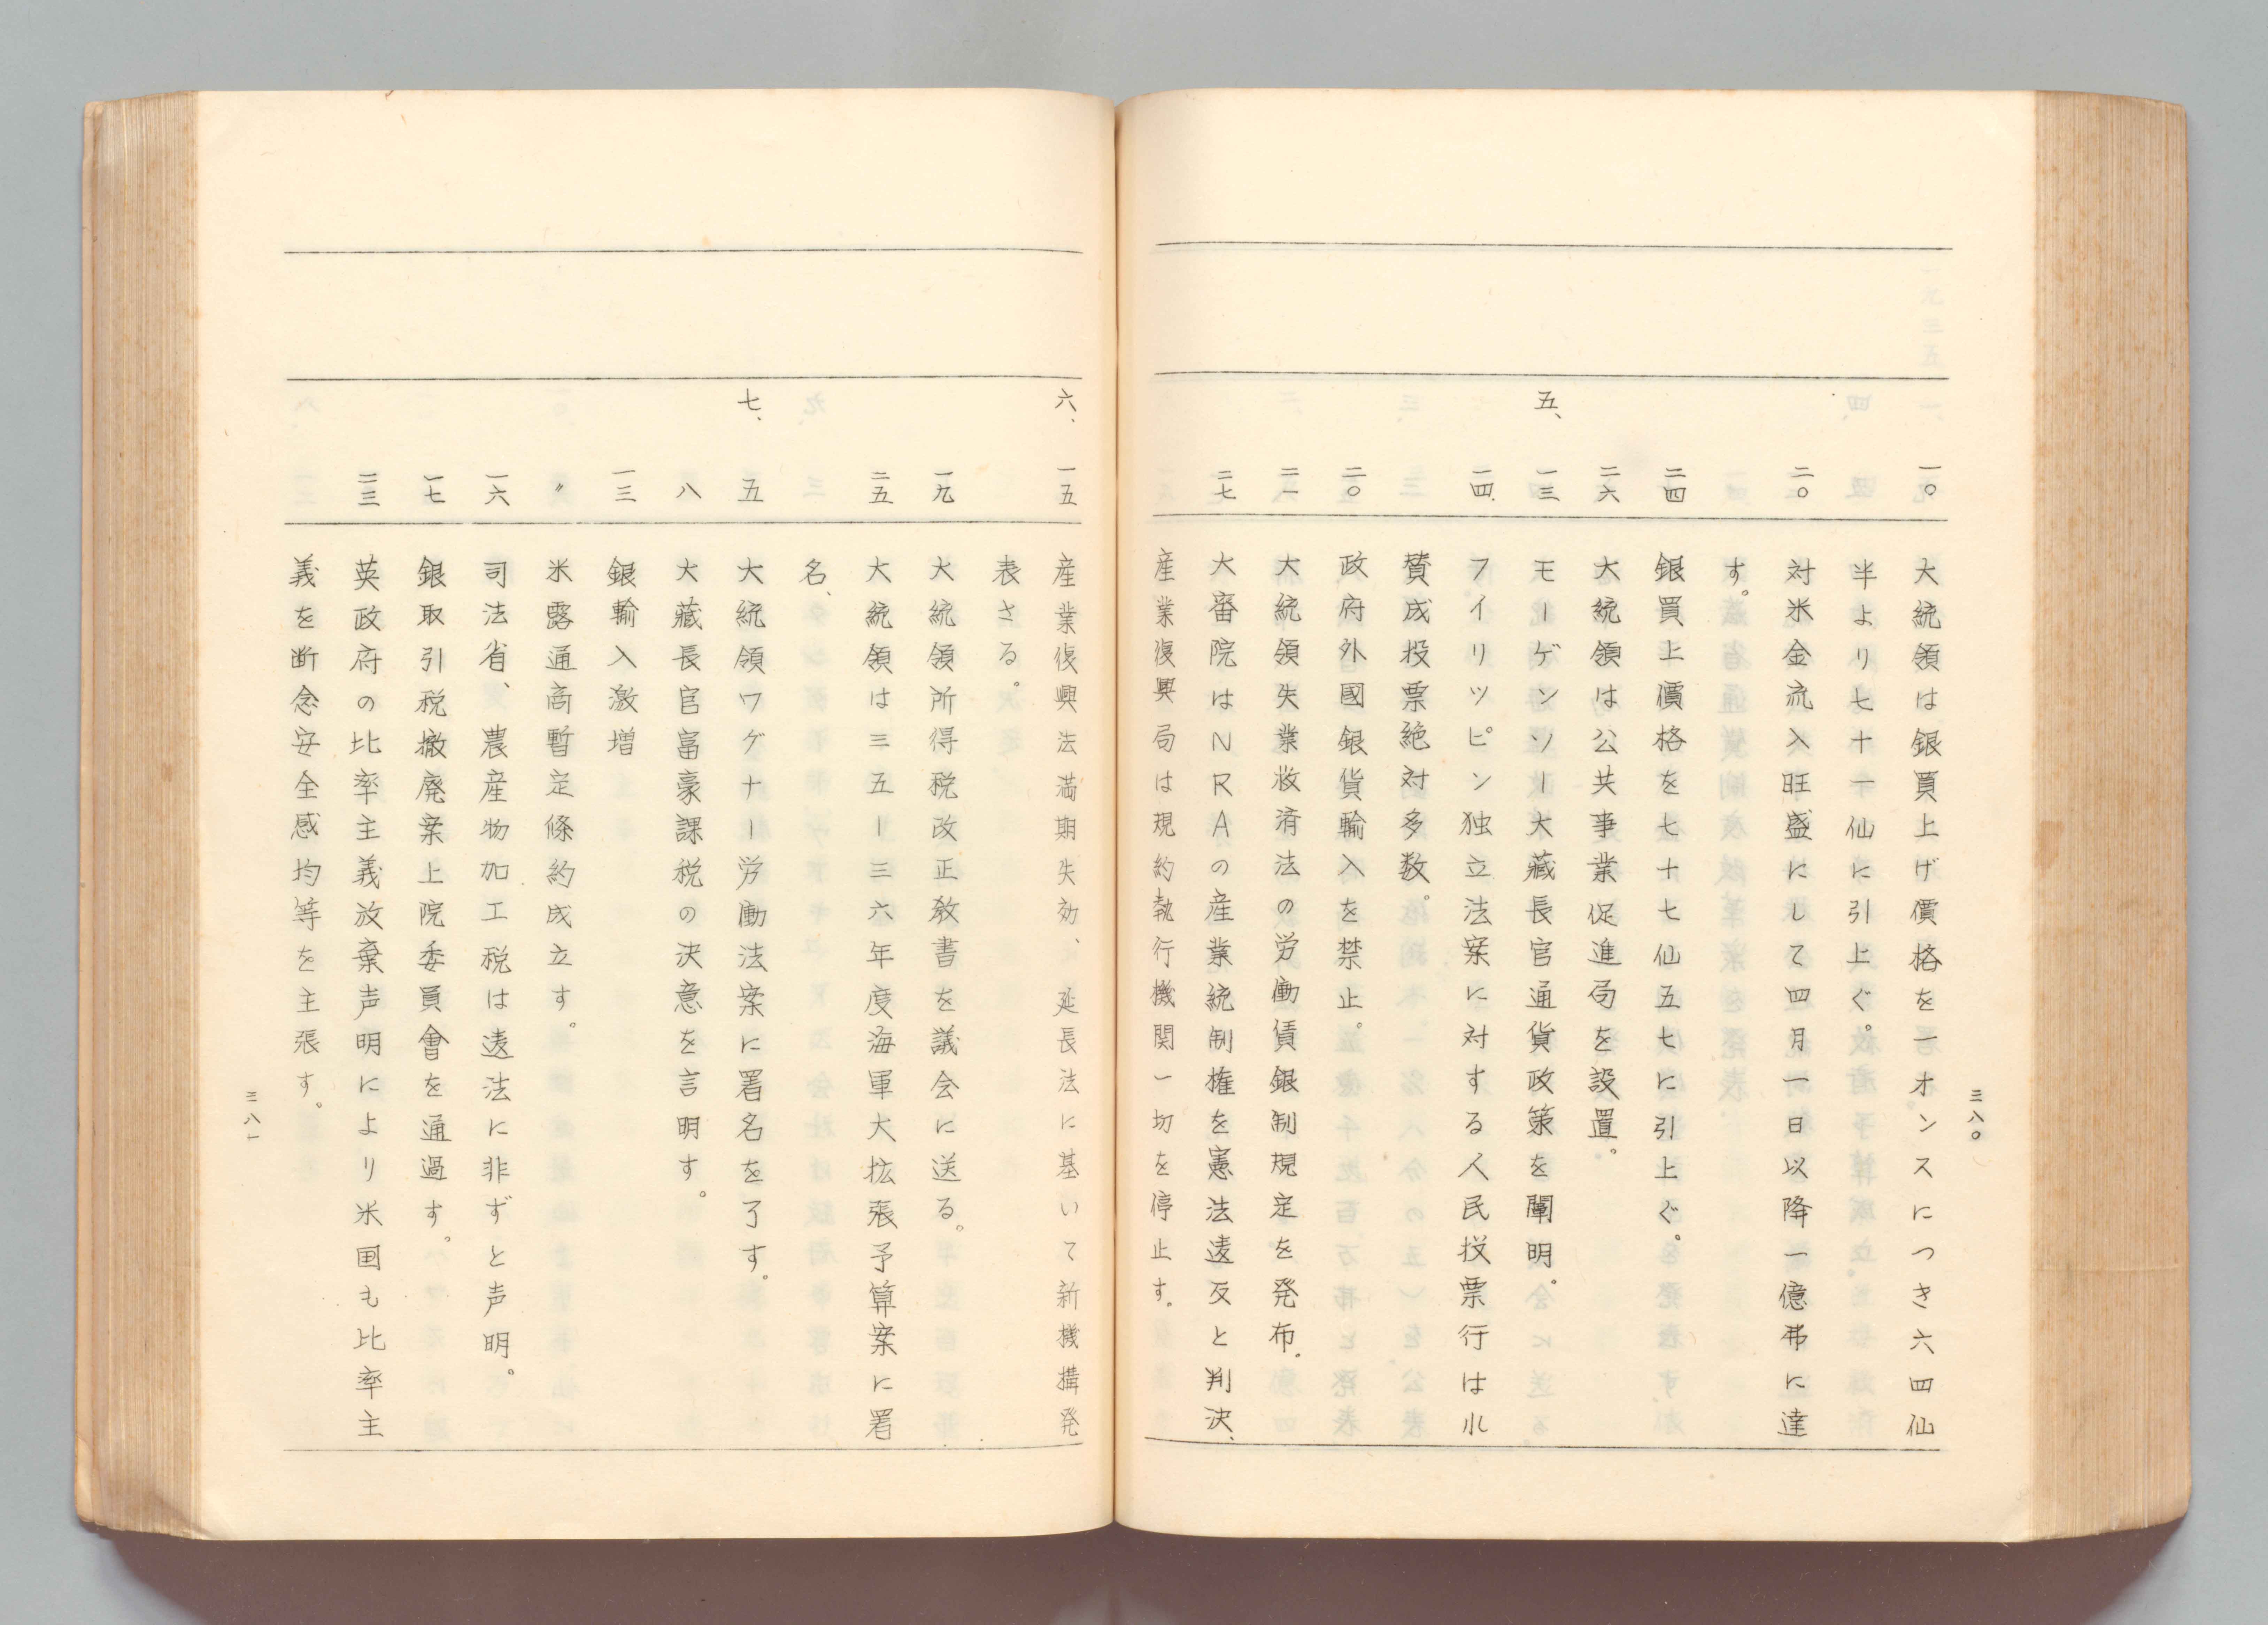 三八〇
一〇 大統領は銀買上げ價格を一オンスにつき六四仙
半より七十一仙に引上ぐ。
二〇 対米金流入旺盛にして四月一日以降一億弗に達
す。
二四 銀買上價格を七十七仙五七に引上ぐ。
二六 大統領は公共事業促進局を設置。
五、 一三 モーゲンソー大藏長官通貨政策を闡明。
一四 フイリツピン独立法案に対する人民投票行はれ
賛成投票絶対多数。
二〇 政府外國銀貨輸入を禁止。
二一 大統領失業救済法の労働賃銀制規定を発布。
二七 大審院はNRAの産業統制権を憲法違反と判決、
産業復興局は規約執行機関一切を停止す。
六、 一五 産業復興法満期失効、延長法に基いて新機構発
表さる。
一九 大統領所得税改正教書を議会に送る。
二五 大統領は三五ー三六年度海軍大拡張予算案に署
名、
七、 五 大統領ワグナー労働法案に署名を了す。
八 大藏長官富豪課税の決意を言明す。
一三 銀輸入激増
〃 米露通商暫定條約成立す。
一六 司法省、農産物加工税は違法に非ずと声明。
一七 銀取引税撤廃案上院委員會を通過す。
二三 英政府の比率主義放棄声明により米国も比率主
義を断念安全感均等を主張す。
三八一